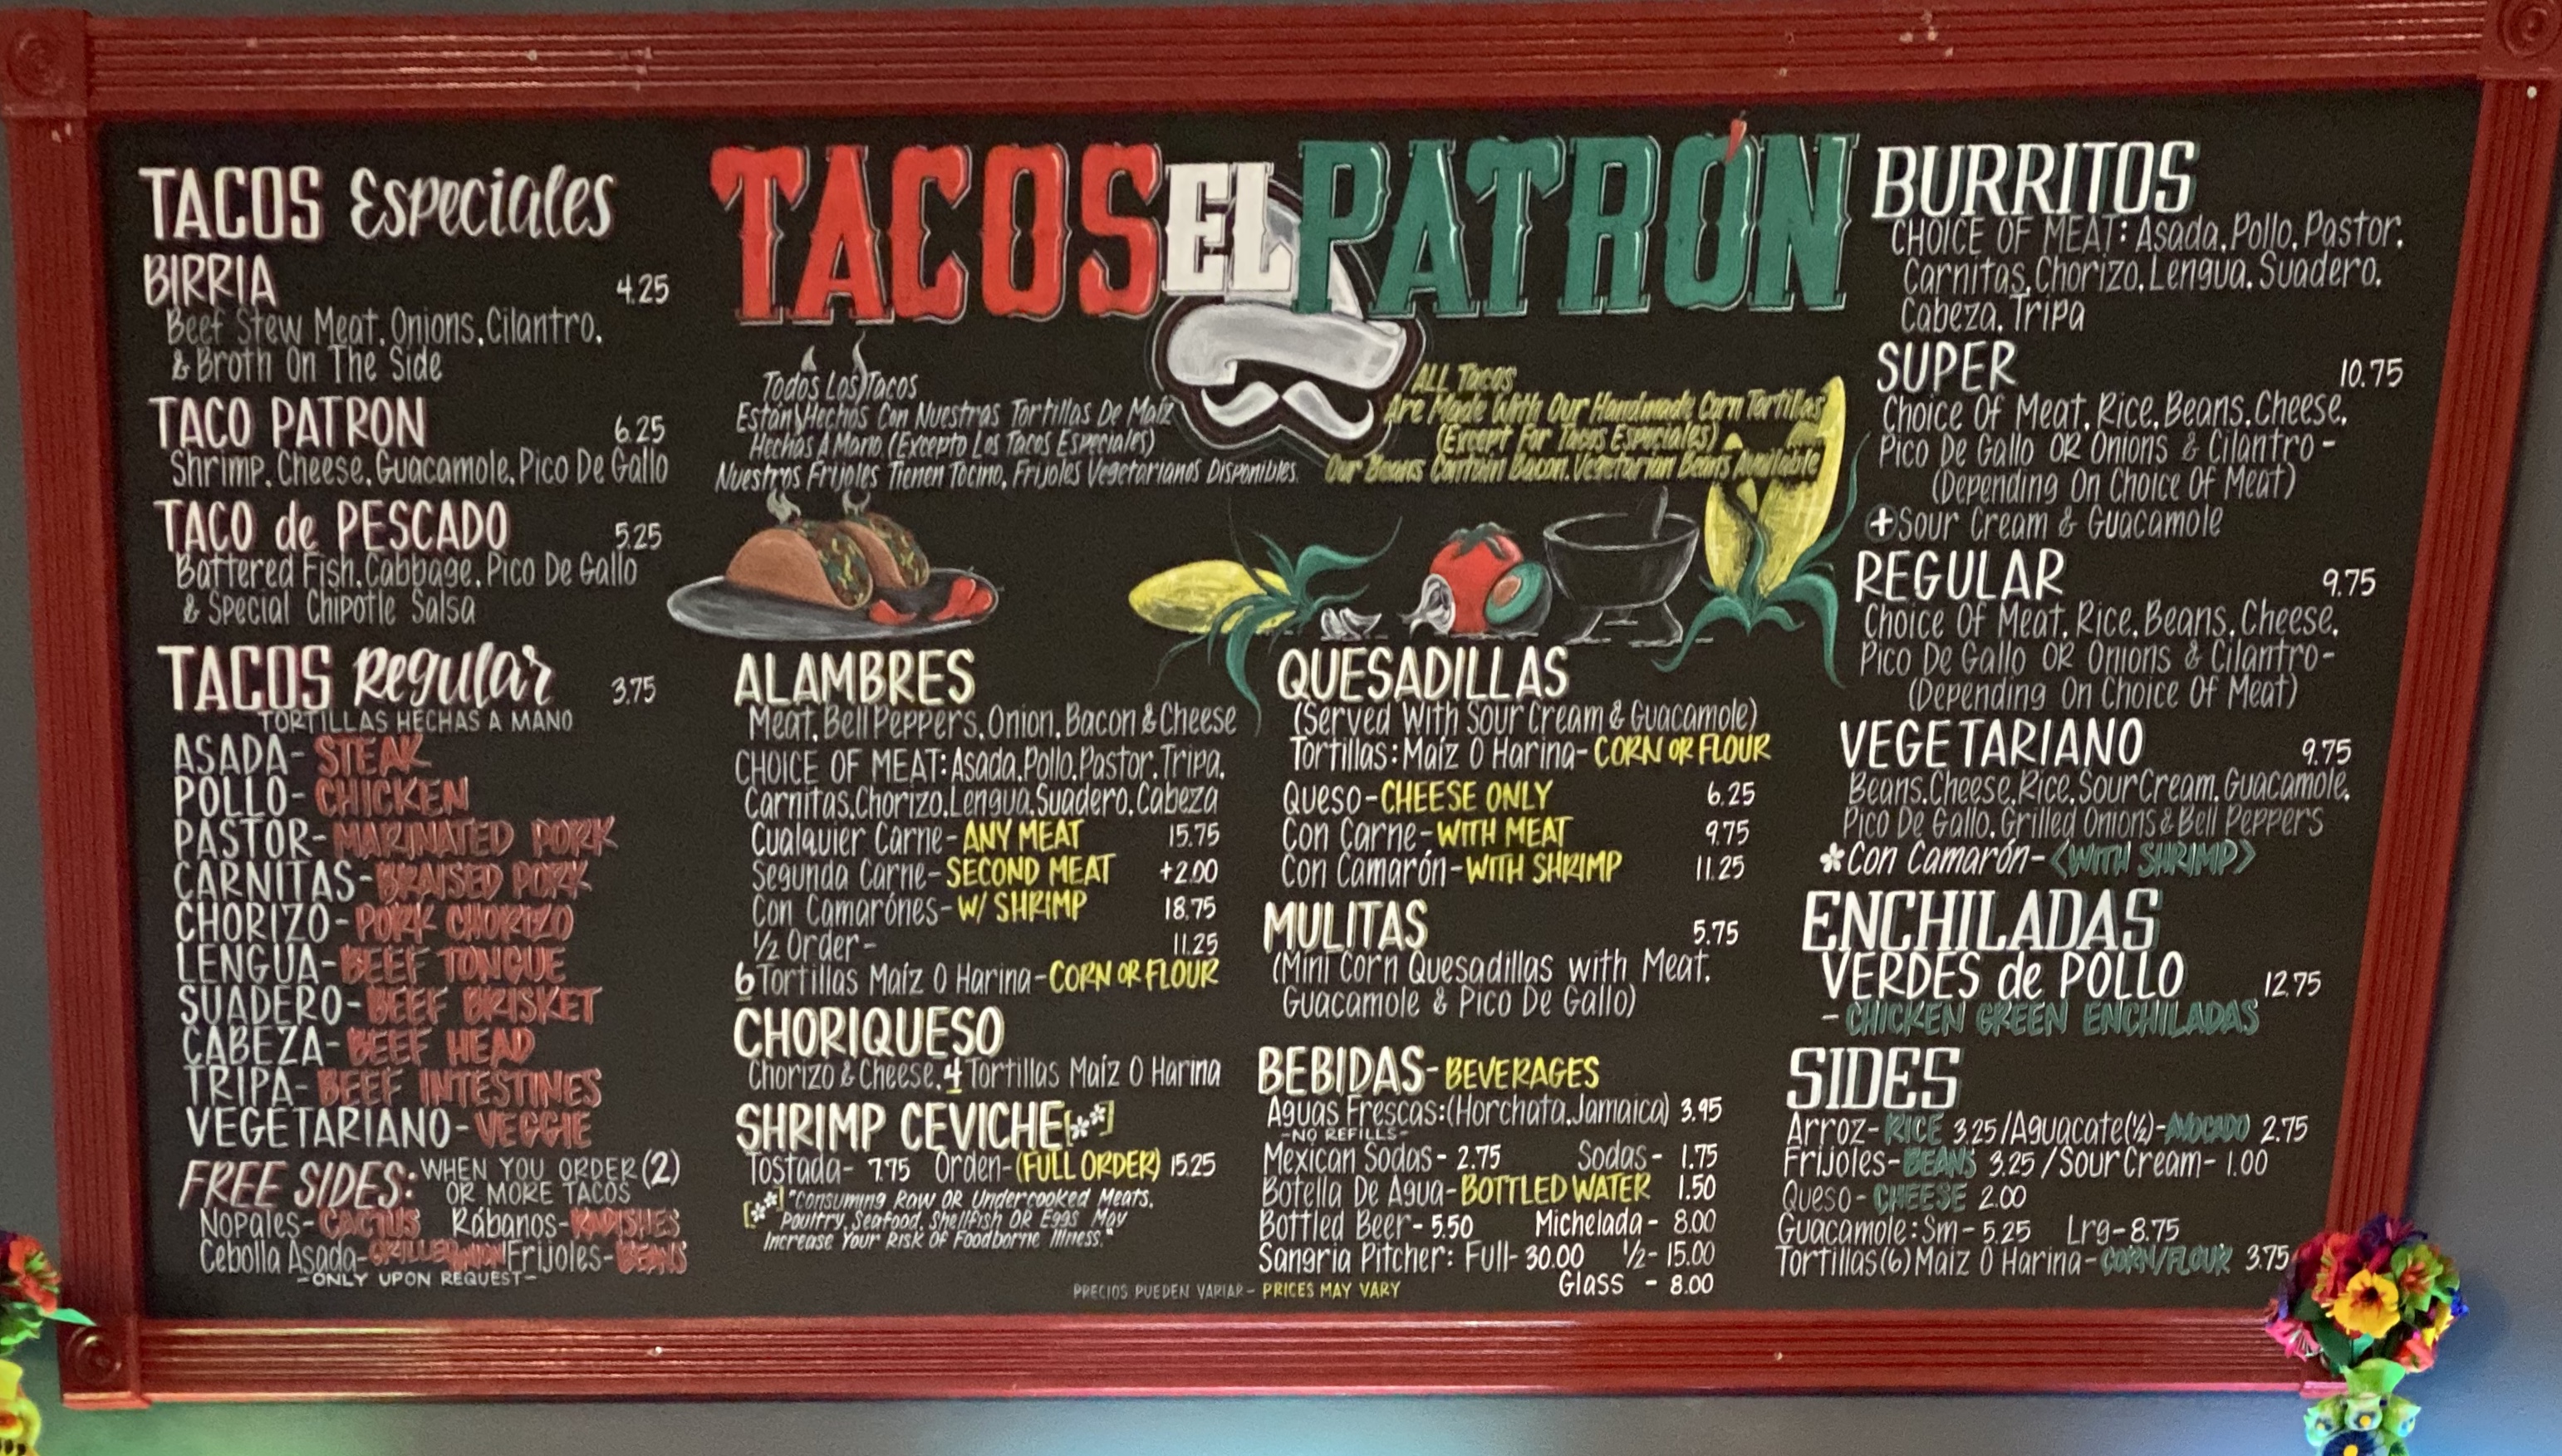 TACOS EL PATRÓN
Todos Los Tacos
Están Hechos Con Nuestras Tortillas De Maíz
Hechas A Mano (Excepto Los Tacos Especiales)
Nuestros Frijoles Tienen Tocino, Frijoles Vegetarianos Disponibles.
ALL Tacos
Are Made With Our Handmade Corn Tortillas
(Except For Tacos Especiales)
Our Beans Contain Bacon. Vegetarian Beans Available
TACOS Especiales
BIRRIA 4.25
Beef Stew Meat, Onions, Cilantro,
& Broth On The Side
TACO PATRON 6.25
Shrimp, Cheese, Guacamole, Pico De Gallo
TACO de PESCADO 5.25
Battered Fish, Cabbage, Pico De Gallo
& Special Chipotle Salsa
TACOS Regular 3.75
TORTILLAS HECHAS A MANO
ASADA- STEAK
POLLO- CHICKEN
PASTOR- MARINATED PORK
CARNITAS- BRAISED PORK
CHORIZO- PORK CHORIZO
LENGUA- BEEF TONGUE
SUADERO- BEEF BRISKET
CABEZA- BEEF HEAD
TRIPA- BEEF INTESTINES
VEGETARIANO- VEGGIE
FREE SIDES: WHEN YOU ORDER (2)
OR MORE TACOS
Nopales- CACTUS Rábanos- RADISHES
Cebolla Asada- GRILLED ONION Frijoles- BEANS
-ONLY UPON REQUEST-
ALAMBRES
Meat, Bell Peppers, Onion, Bacon & Cheese
CHOICE OF MEAT: Asada, Pollo, Pastor, Tripa,
Carnitas, Chorizo, Lengua, Suadero, Cabeza
Cualquier Carne- ANY MEAT 15.75
Segunda Carne- SECOND MEAT +2.00
Con Camarónes- W/ SHRIMP 18.75
½ Order- 11.25
6 Tortillas Maíz O Harina- CORN OR FLOUR
CHORIQUESO
Chorizo & Cheese, 4 Tortillas Maíz O Harina
SHRIMP CEVICHE [**]
Tostada- 7.75 Orden- (FULL ORDER) 15.25
[**] "Consuming Raw OR Undercooked Meats,
Poultry, Seafood, Shellfish OR Eggs May
Increase Your Risk Of Foodborne Illness."
QUESADILLAS
(Served With Sour Cream & Guacamole)
Tortillas: Maíz O Harina- CORN OR FLOUR
Queso- CHEESE ONLY 6.25
Con Carne- WITH MEAT 9.75
Con Camarón- WITH SHRIMP 11.25
MULITAS 5.75
(Mini Corn Quesadillas with Meat,
Guacamole & Pico De Gallo)
BEBIDAS- BEVERAGES
Aguas Frescas: (Horchata, Jamaica) 3.95
-NO REFILLS-
Mexican Sodas- 2.75 Sodas- 1.75
Botella De Agua- BOTTLED WATER 1.50
Bottled Beer- 5.50 Michelada- 8.00
Sangria Pitcher: Full- 30.00 ½- 15.00
Glass - 8.00
PRECIOS PUEDEN VARIAR- PRICES MAY VARY
BURRITOS
CHOICE OF MEAT: Asada, Pollo, Pastor,
Carnitas, Chorizo, Lengua, Suadero,
Cabeza, Tripa
SUPER 10.75
Choice Of Meat, Rice, Beans, Cheese,
Pico De Gallo OR Onions & Cilantro-
(Depending On Choice Of Meat)
+ Sour Cream & Guacamole
REGULAR 9.75
Choice Of Meat, Rice, Beans, Cheese,
Pico De Gallo OR Onions & Cilantro-
(Depending On Choice Of Meat)
VEGETARIANO 9.75
Beans, Cheese, Rice, Sour Cream, Guacamole,
Pico De Gallo, Grilled Onions & Bell Peppers
*Con Camarón- <WITH SHRIMP>
ENCHILADAS
VERDES de POLLO 12.75
- CHICKEN GREEN ENCHILADAS
SIDES
Arroz- RICE 3.25 / Aguacate (½)- AVOCADO 2.75
Frijoles- BEANS 3.25 / Sour Cream- 1.00
Queso- CHEESE 2.00
Guacamole: Sm- 5.25 Lrg- 8.75
Tortillas (6) Maiz O Harina- CORN/FLOUR 3.75